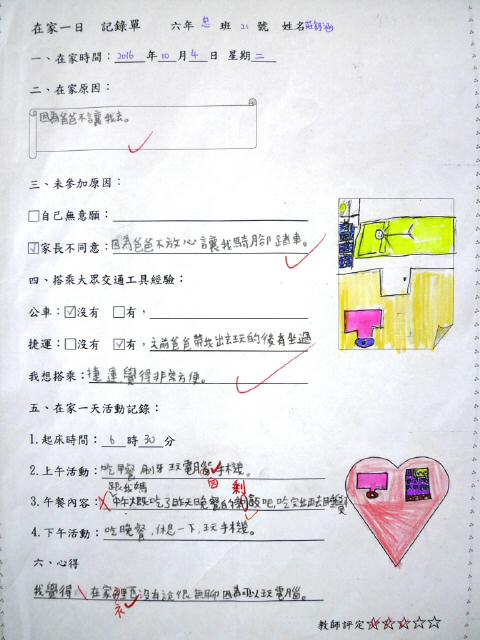 在家一日 記錄單 六年 忠 班 21 號 姓名 莊
一、在家時間：2016 年 10 月 4 日 星期 二
二、在家原因：
因為爸爸不讓我去。
三、未參加原因：
□自己無意願：
☑家長不同意：因為爸爸不放心讓我騎腳踏車。
四、搭乘大眾交通工具經驗：
公車：☑沒有 □有，
捷運：□沒有 ☑有，之前爸爸帶出去玩的後有坐過
我想搭乘：捷運覺得非常方便。
五、在家一天活動記錄：
1.起床時間：6 時 30 分
2.上午活動：吃早餐 刷牙 玩電腦 手機。
跟我媽
3.午餐內容：中午大概吃了昨天晚餐的 剩 飯吧，吃完出去
4.下午活動：吃晚餐，休息一下，玩手機。
六、心得
我覺得：在家裡 沒有說很無聊因為可以玩電腦。
教師評定☆☆☆☆☆